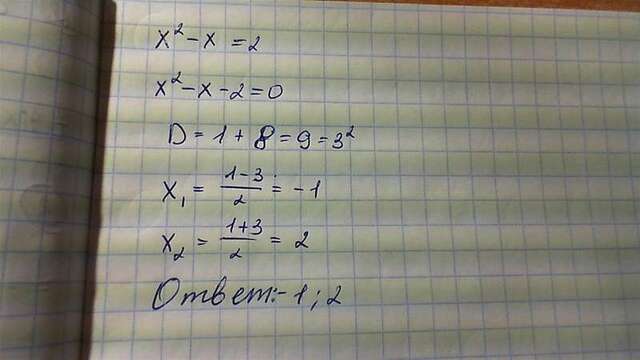 x² - x = 2
x² - x - 2 = 0
D = 1 + 8 = 9 = 3²
x₁ = (1-3)/2 = -1
x₂ = (1+3)/2 = 2
Ответ: -1; 2